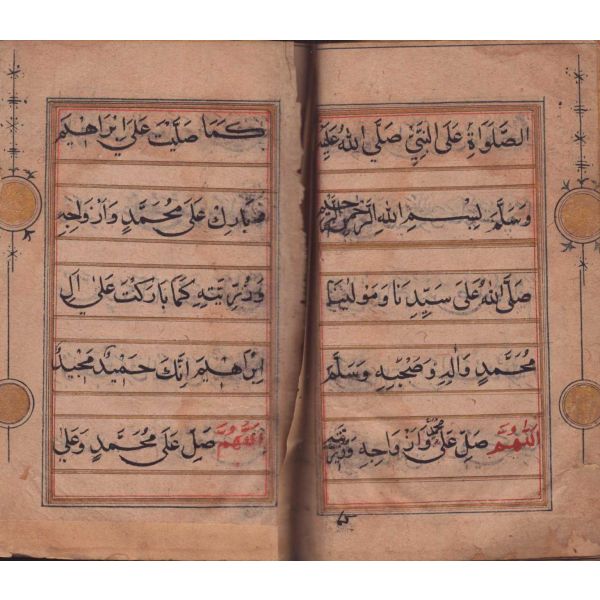 الصَّلَوَاةِ عَلَى النَّبِيِّ صَلَّى اللهُ عَلَيْهِ
وَسَلَّمَ بِسْمِ اللهِ الرَّحْمٰنِ الرَّحِيْمِ
صَلَّى اللهُ عَلَى سَيِّدِنَا وَمَوْلٰينَا
مُحَمَّدٍ وَاٰلِهِ وَصَحْبِهِ وَسَلَّمَ
اَللّٰهُمَّ صَلِّ عَلَى مُحَمَّدٍ وَاَزْوَاجِهِ وَذُرِّيَّتِهِ
كَمَا صَلَّيْتَ عَلَى اِبْرَاهِيْمَ
وَبَارِكْ عَلَى مُحَمَّدٍ وَاَزْوَاجِهِ
وَذُرِّيَّتِهِ كَمَا بَارَكْتَ عَلَى اٰلِ
اِبْرَاهِيْمَ اِنَّكَ حَمِيْدٌ مَجِيْدٌ
اَللّٰهُمَّ صَلِّ عَلَى مُحَمَّدٍ وَعَلَى